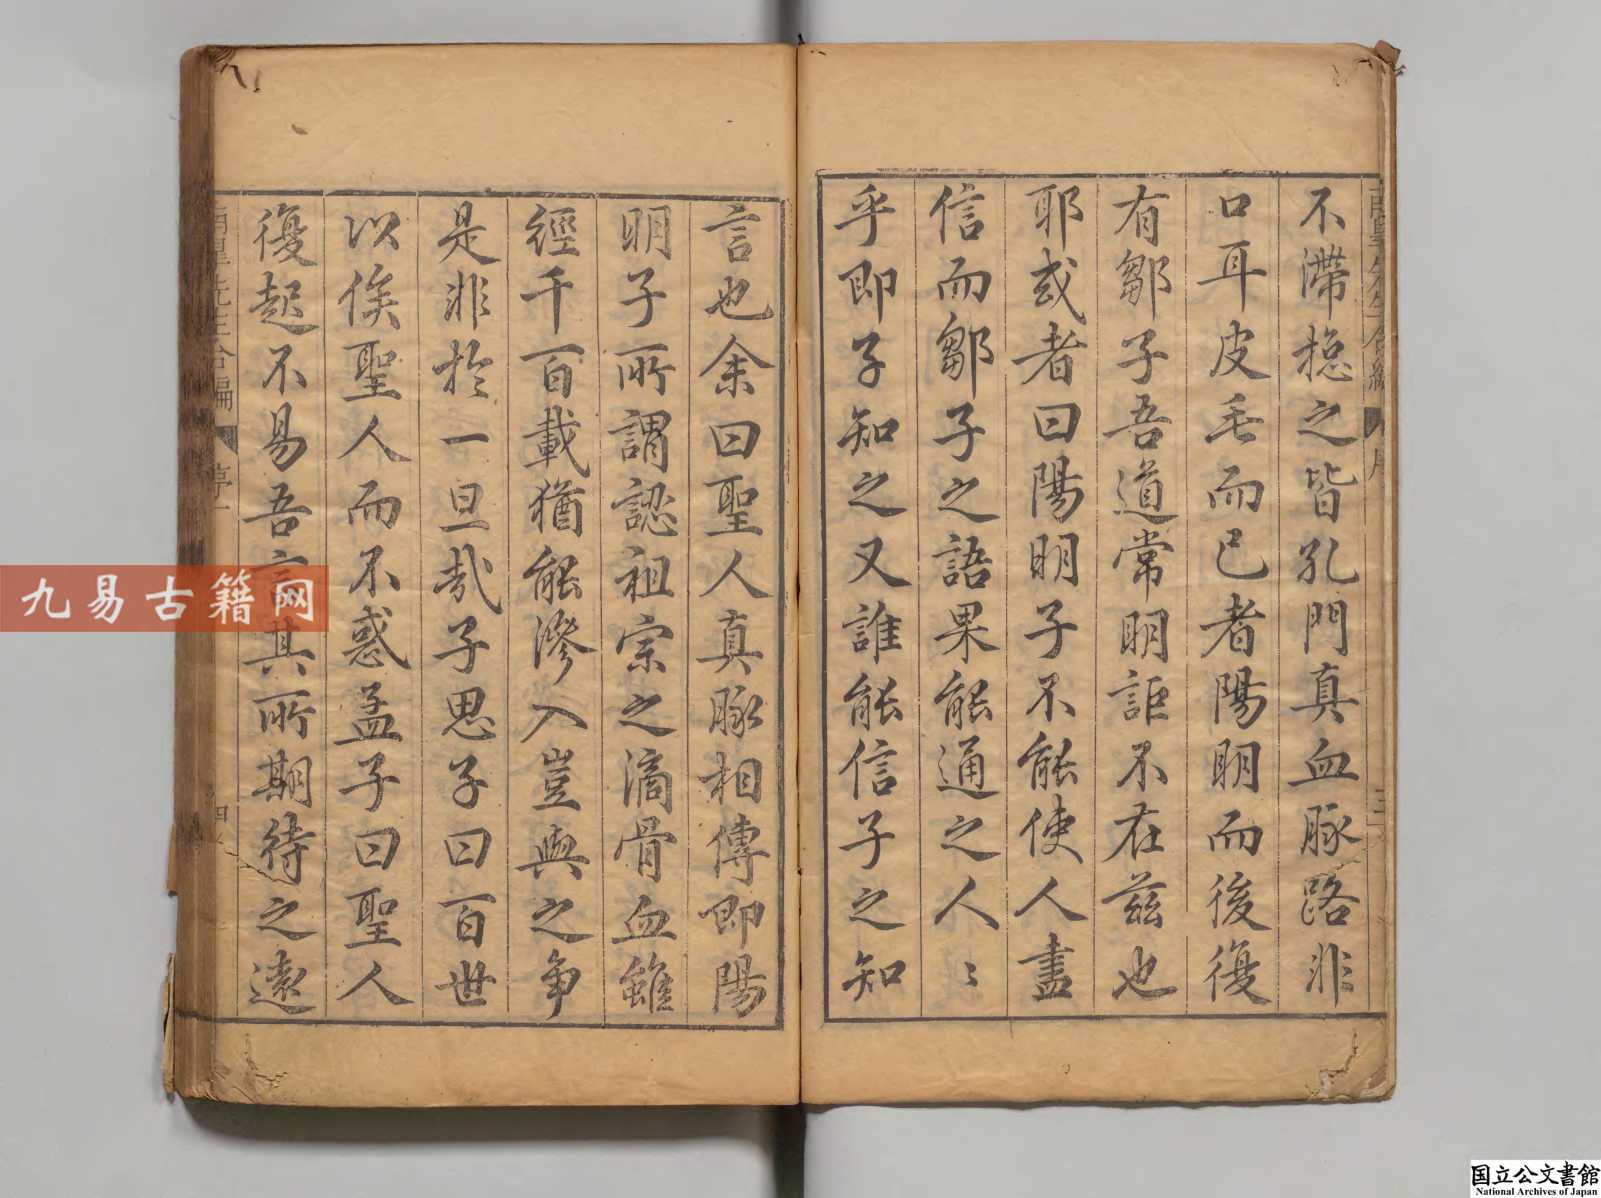 不滯捴之皆孔門真血脉路非
口耳皮毛而已者陽明而後復
有鄒子吾道常明詎不在茲也
耶或者曰陽明子不能使人盡
信而鄒子之語果能通之人〻
乎即子知之又誰能信子之知
言也余曰聖人真脉相傳即陽
明子所謂認祖宗之滴骨血雖
經千百載猶能滲入豈與之争
是非扵一旦哉子思子曰百世
以俟聖人而不惑孟子曰聖人
復起不易吾言其所期待之遠
南皐先生合編
序
三
南皐先生合編
序
四
九易古籍网
国立公文書館
National Archives of Japan